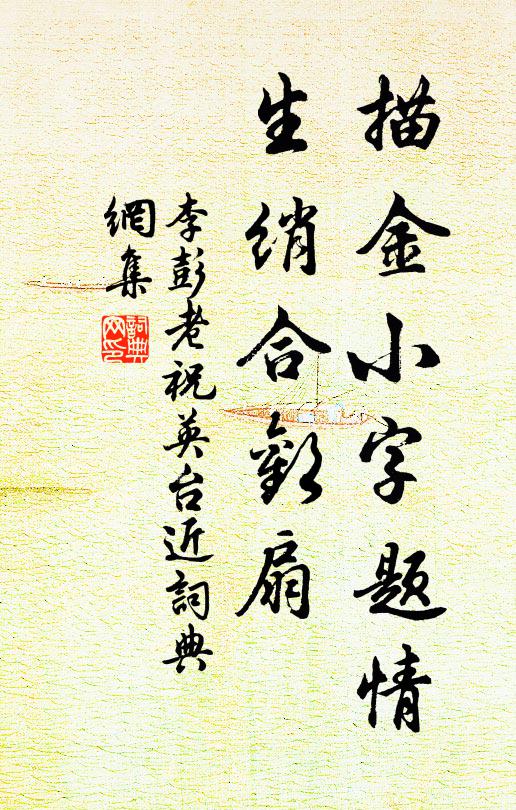 描金小字题情
生绡合歡扇
李彭老祝英台近詞典
網集
詞典
网印